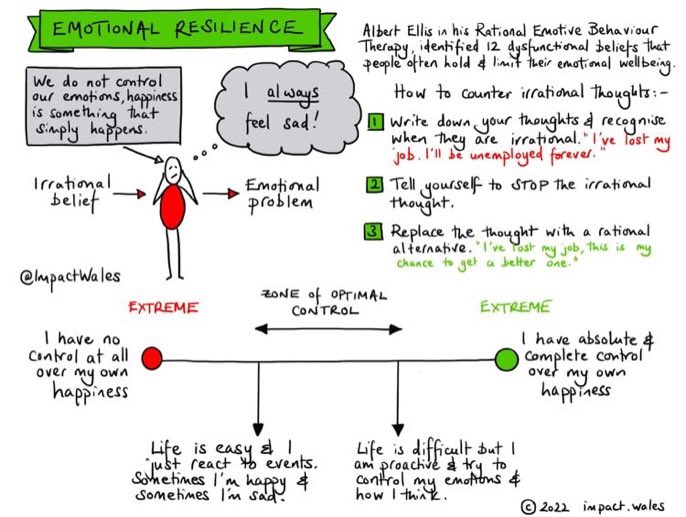 EMOTIONAL RESILIENCE
Albert Ellis in his Rational Emotive Behaviour
Therapy, identified 12 dysfunctional beliefs that
people often hold & limit their emotional wellbeing.
We do not control
our emotions, happiness
is something that
simply happens.
I always
feel sad!
Irrational
belief
Emotional
problem
@ImpactWales
How to counter irrational thoughts:-
1 Write down your thoughts & recognise
when they are irrational. "I've lost my
job. I'll be unemployed forever."
2 Tell yourself to STOP the irrational
thought.
3 Replace the thought with a rational
alternative. "I've lost my job, this is my
chance to get a better one."
EXTREME
ZONE of OPTIMAL
CONTROL
EXTREME
I have no
control at all
over my own
happiness
I have absolute &
complete control
over my own
happiness
Life is easy & I
just react to events.
Sometimes I'm happy &
sometimes I'm sad.
Life is difficult but I
am proactive & try to
control my emotions &
how I think.
© 2022 impact.wales